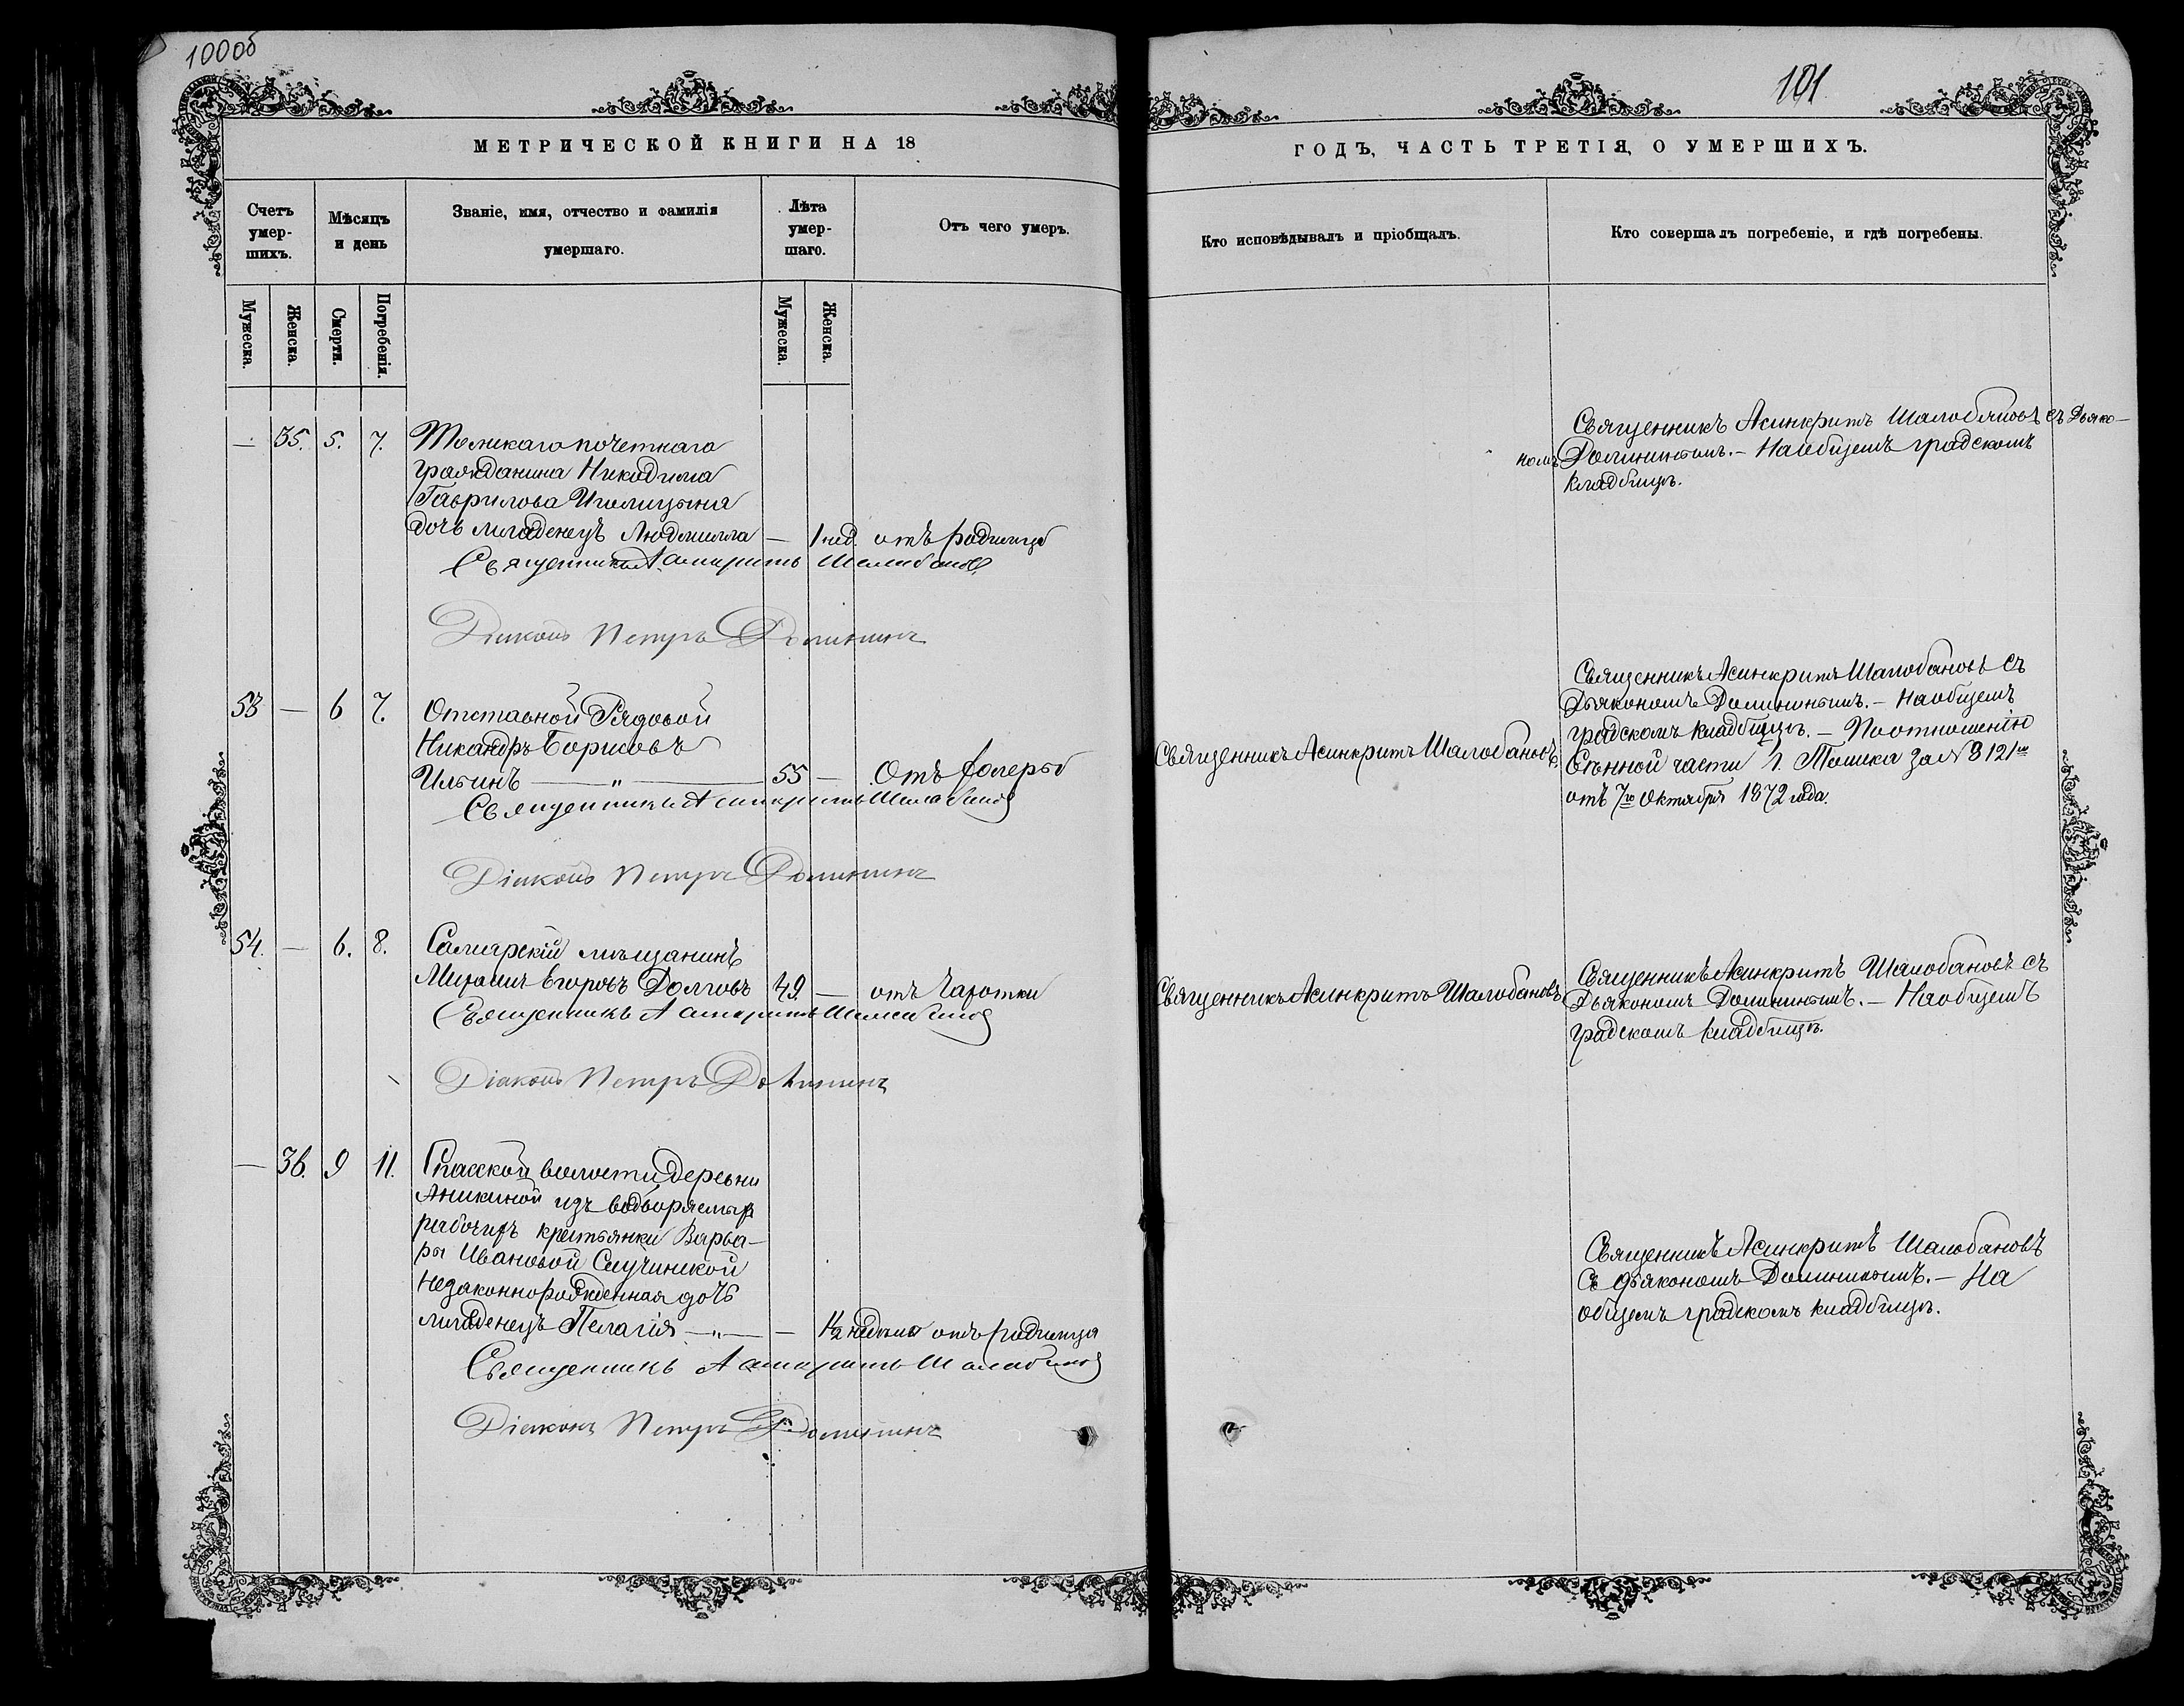 100об
101
МЕТРИЧЕСКОЙ КНИГИ НА 18
ГОДЪ, ЧАСТЬ ТРЕТІЯ, О УМЕРШИХЪ.
Счетъ умер-шихъ.
Мѣсяцъ и день
Званіе, имя, отчество и фамилія умершаго.
Лѣта умер-шаго.
Отъ чего умеръ.
Кто исповѣдывалъ и пріобщалъ.
Кто совершалъ погребеніе, и гдѣ погребены.
Мужеска.
Женска.
Смерти.
Погребенія.
Мужеска.
Женска.
— 35. 5. 7. Томскаго почетнаго
гражданина Никодима
Гаврилова
дочь младенецъ Людмилла — 1 нед. отъ родимца
Священникъ Асинкритъ Шалобановъ
Діаконъ Петръ Долининъ
Священникъ Асинкритъ Шалобановъ съ Дьяко-
номъ Долининымъ. — На общемъ градскомъ
кладбищѣ.
53 — 6 7. Отставной Рядовой
Никандръ Борисовъ
Ильинъ — „ — 55 — Отъ холеры
Священникъ Асинкритъ Шалобановъ
Діаконъ Петръ Долининъ
Священникъ Асинкритъ Шалобановъ.
Священникъ Асинкритъ Шалобановъ съ
Дьякономъ Долининымъ. — На общемъ
градскомъ кладбищѣ. — По отношенію
Сѣнной части г. Томска за № 3121м
отъ 7го Октября 1872 года.
54. — 6. 8. Самарскій мѣщанинъ
Михаилъ Егоровъ Долговъ 49. — отъ Чахотки
Священникъ Асинкритъ Шалобановъ
Діаконъ Петръ Долининъ
Священникъ Асинкритъ Шалобановъ
Священникъ Асинкритъ Шалобановъ съ
Дьякономъ Долининымъ. — На общемъ
градскомъ кладбищѣ.
— 36. 9 11. Спасской волости деревни
Аникиной изъ водворяемыхъ
рабочихъ крестьянки Варва-
ры Ивановой
Незаконнорожденная дочь
младенецъ Пелагія — „ — — 1½ недѣли отъ родимца
Священникъ Асинкритъ Шалобановъ
Діаконъ Петръ Долининъ
Священникъ Асинкритъ Шалобановъ
съ дьякономъ Долининымъ. — На
общемъ градскомъ кладбищѣ.